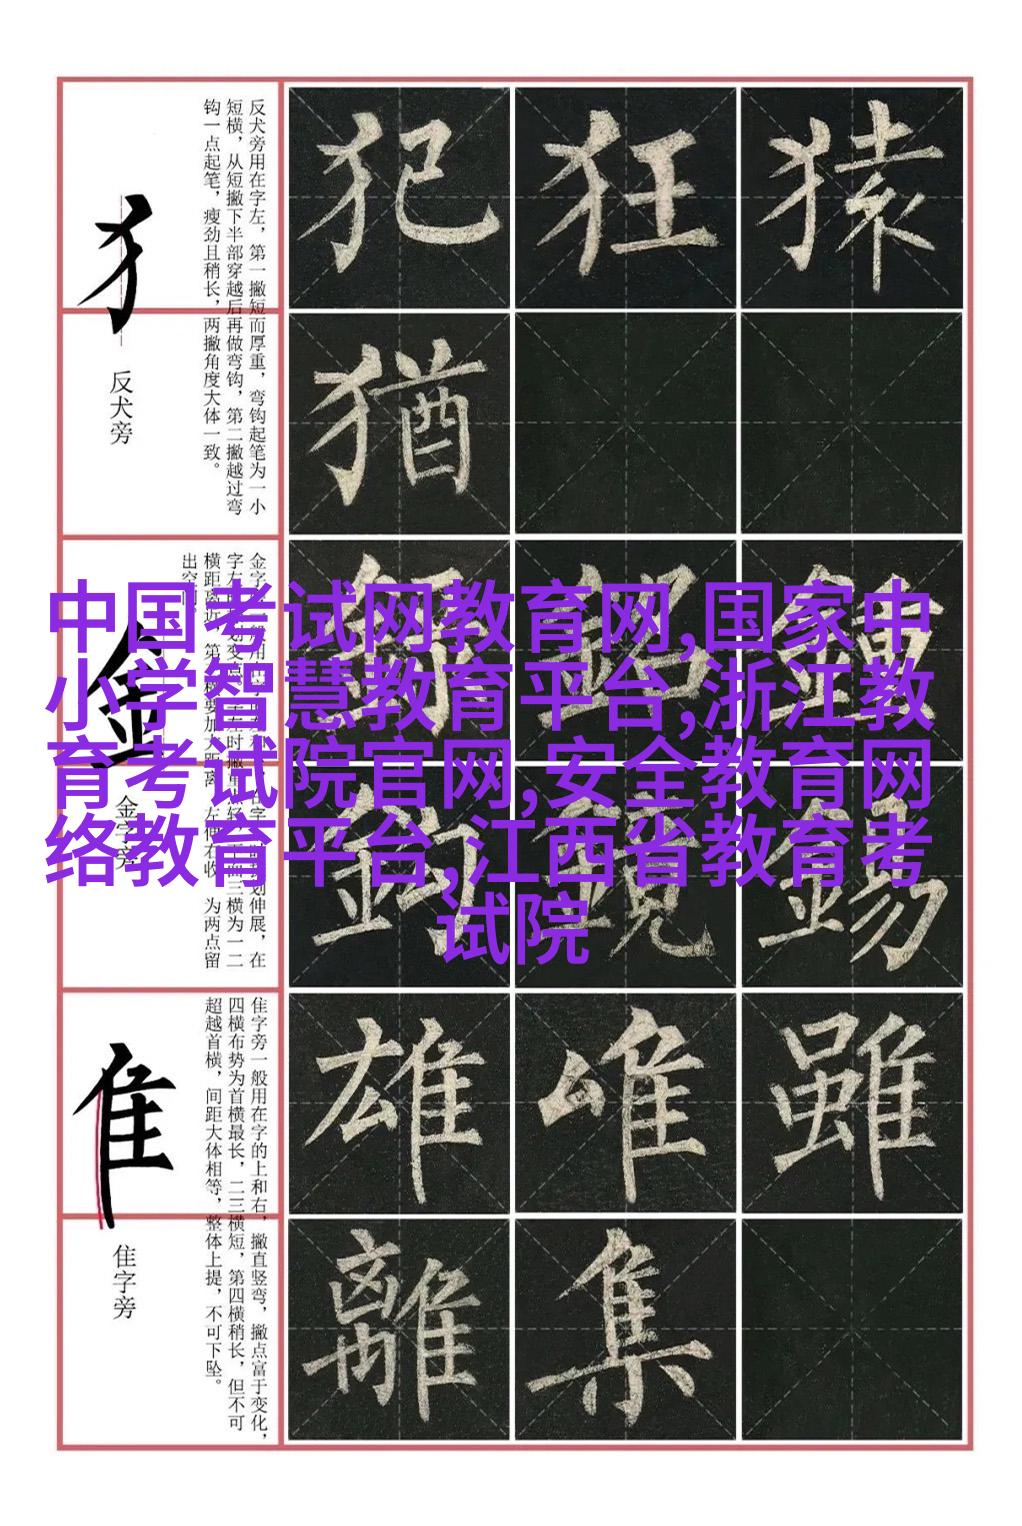 反犬旁用在字左，第一撇短而厚重，弯钩起笔为一小
短横，从短撇下半部穿越后再做弯钩，第二撇越过弯
钩一点起笔，瘦劲且稍长，两撇角度大体一致。
反犬旁
犯 狂 猿
猶
中国考试网教育网,国家中
小学智慧教育平台,浙江教
育考试院官网,安全教育网
络教育平台,江西省教育考
试院
金字旁
隹字旁一般用在字的上和右，撇直竖弯，撇点富于变化，
四横布势为首横最长，二三横短，第四横稍长，但不可
超越首横，间距大体相等，整体上提，不可下坠。
隹字旁
雄 唯 雖
離 集